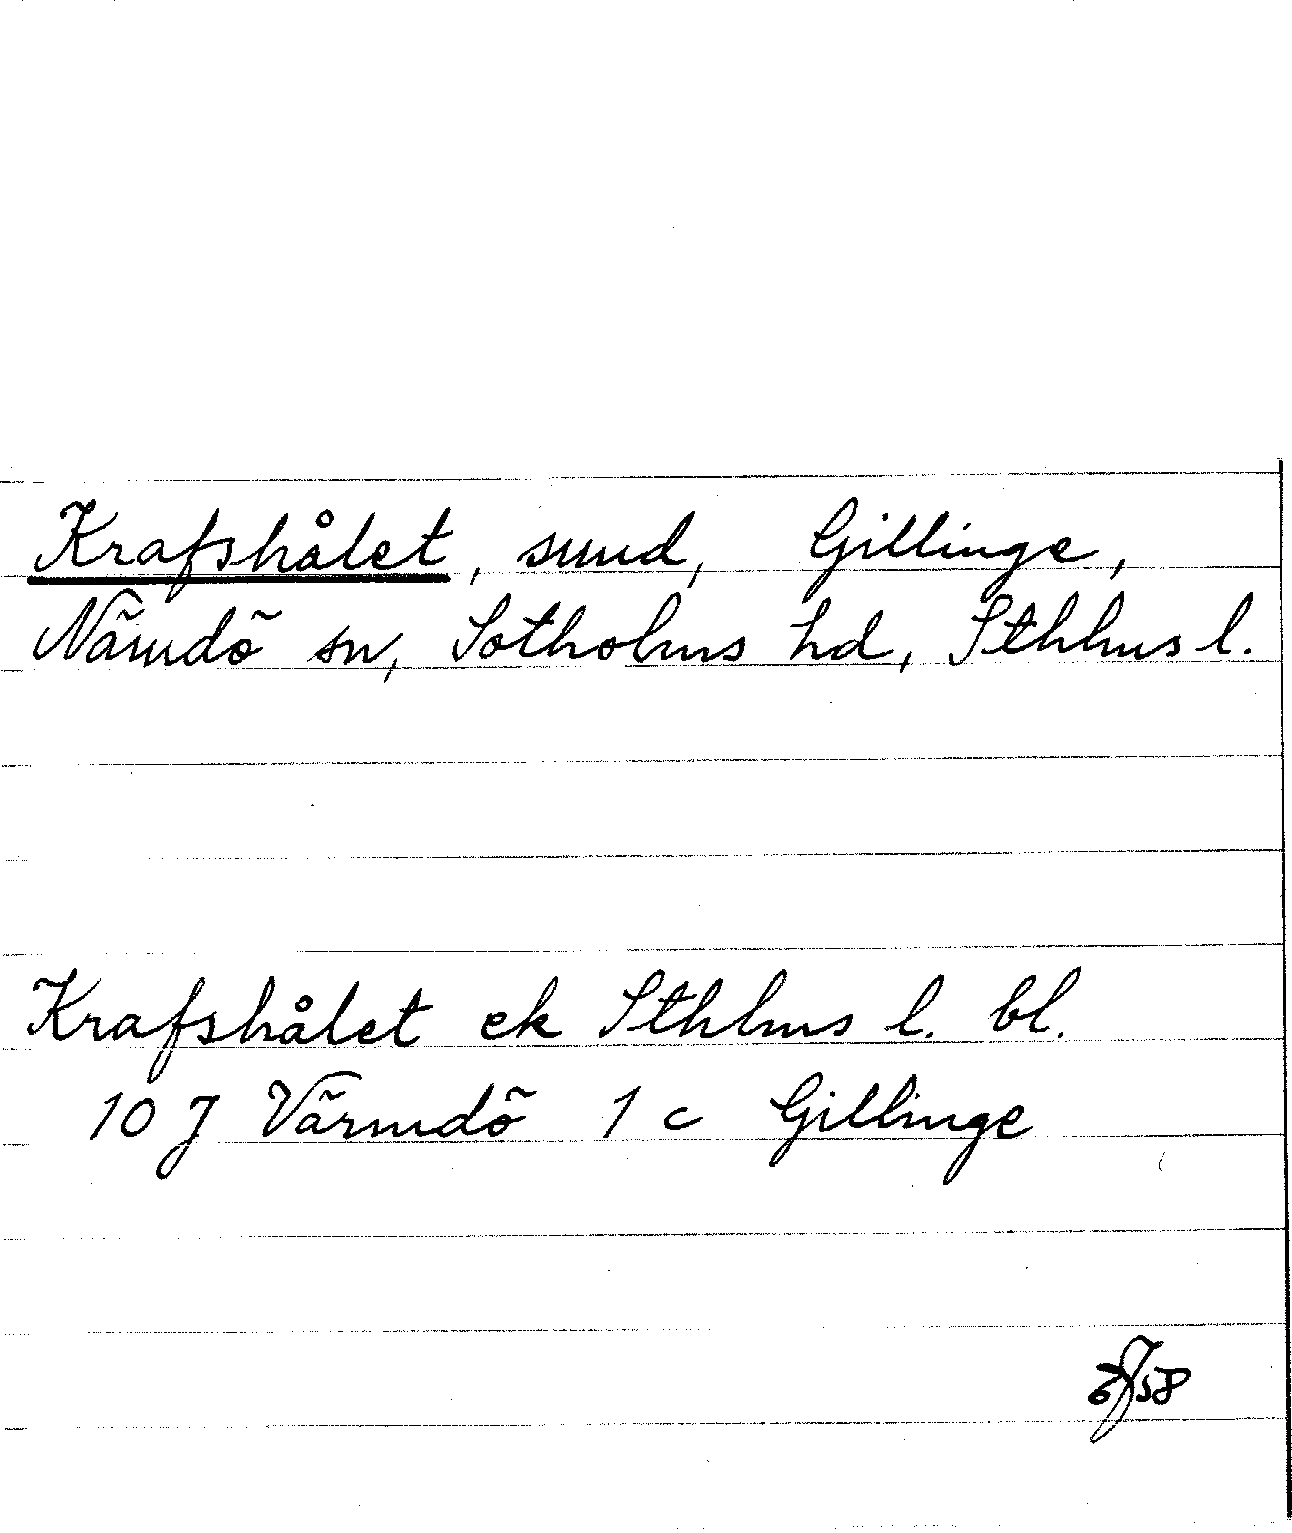 Krafshålet, sund, Gillinge,
Nämdö sn, Sotholms hd, Sthlms l.
Krafshålet ek Sthlms l. bl.
10 J Värmdö 1 c Gillinge